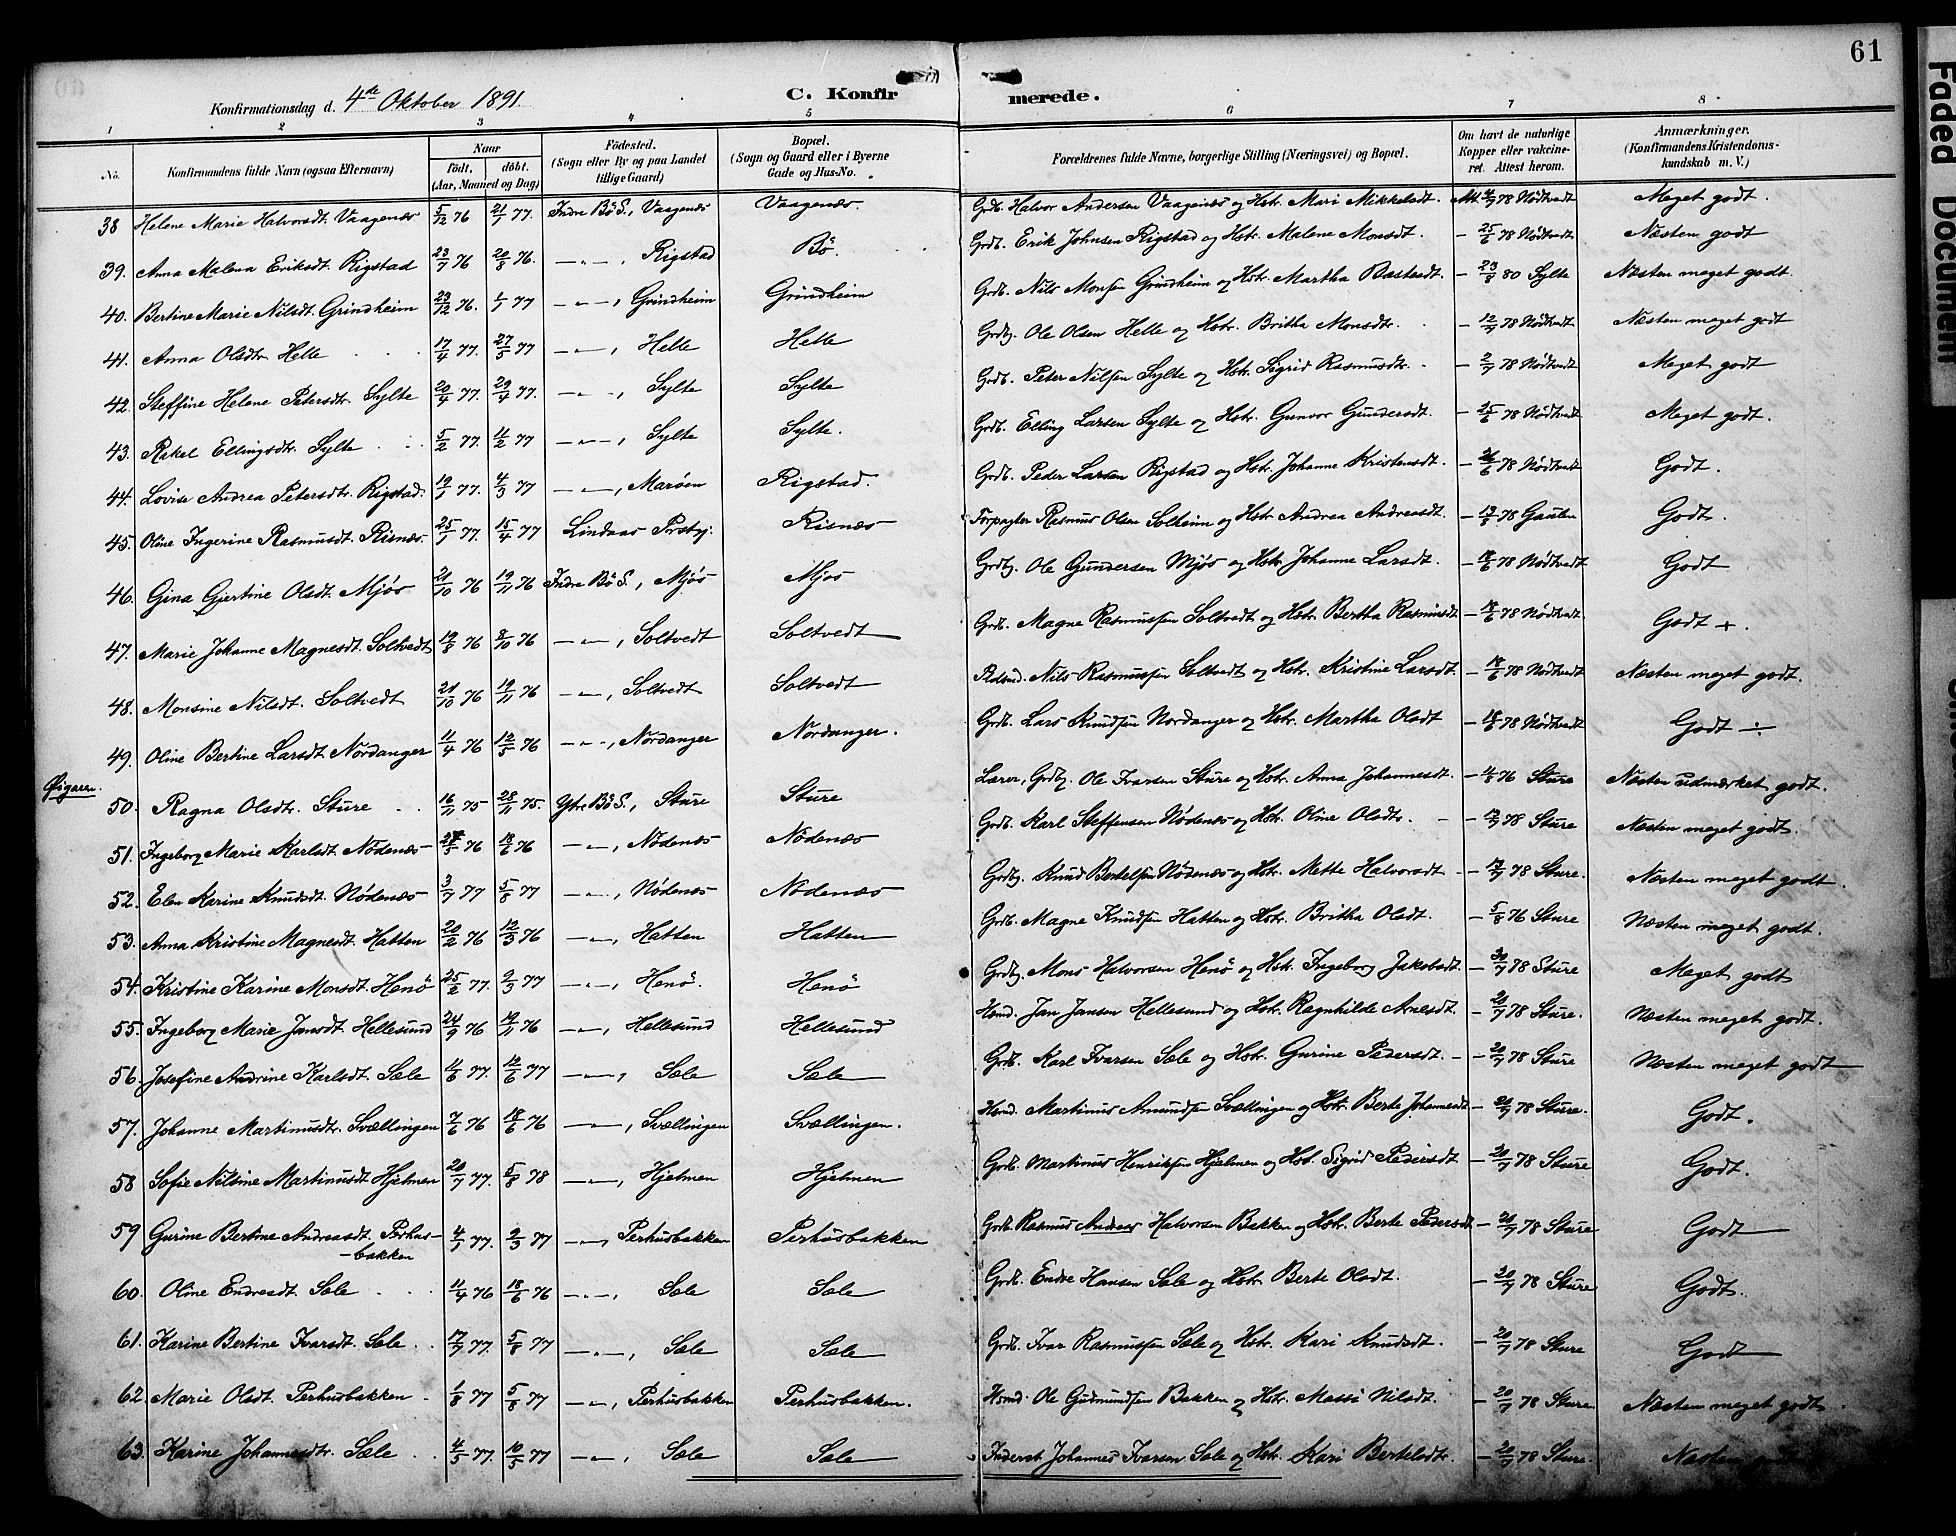 61
Konfirmationsdag d. 4de Oktober 1891. C. Konfir merede.
1 2 3 4 5 6 7 8
No. Konfirmandens fulde Navn (ogsaa Efternavn) Naar Født. døbt. (Aar, Maaned og Dag) Fødested. (Sogn eller By og paa Landet tillige Gaard) Bopæl. (Sogn og Gaard eller i Byerne Gade og Hus-No. Forældrenes fulde Navne, borgerlige Stilling (Næringsvei) og Bopæl. Om havt de naturlige Kopper eller vakcineret. Attest herom. Anmærkninger. (Konfirmandens Kristendomskundskab m. V.)
38 Helene Marie Halvorsdt. Vaagenæs 5/12 76 21/1 77. Indre Bø S., Vaagenæs Vaagenæs. Grdb. Halvor Andersen Vaagenæs og Hstr. Mari Mikkelsdt. 78 Nødtvedt Meget godt.
39. Anna Malena Eriksdt. Rigstad 23/7 76 20/8 76. —"—, Rigstad Bø. Grdb. Erik Johnsen Rigstad og Hstr. Malene Monsdt. — 25/6 78 Nødtvedt Næsten godt
40. Bertine Marie Nilsdt. Grindheim 23/12 76. 1/1 77 —"—, Grindheim Grindheim Grdb. Nils Monsen Grindheim og Hstr. Martha Bastesdt. — 80 Sylte Næsten meget godt.
41. Anna Olsdtr. Helle 17/4 77. 27/5 77 —"—, Helle Helle Grdbg. Ole Olsen Helle og Hstr. Britha Monsdtr. — 12/7 78 Nødtvedt Næsten meget godt
42. Steffine Helene Petersdtr. Sylte 20/4 77. 29/4 77. —"—, Sylte Sylte Grdb. Peter Nilsen Sylte og Hstr. Sigrid Rasmusdtr. — 2/7 78 Nødtvedt Meget godt
43. Rakel Ellingsdtr. Sylte 5/2 77. 11/2 77 —"—, Sylte Sylte. Grdb. Elling Larsen Sylte og Hstr. Gunvor Gundersdt. — 25/6 78 Nødtvedt Meget godt.
44. Lovise Andrea Petersdtr. Rigstad. 19/1 77. 4/3 77 —"—, Marøen Rigstad. Grdb. Peder Larsen Rigstad og Hstr. Johanne Kristensdt. — 78 Nødtvedt Godt.
45. Oline Ingerine Rasmusdt. Risnæs. 25/1 77. 15/4 77 Lindaas Prstgj. Risnæs Forpagter Rasmus Olsen Solheim og Hstr. Andrea Andreasdt. — 78 Gaulen Godt.
46. Gina Gjertine Olsdt. Mjøs 21/10 76 19/11 76 Indre Bø S., Mjøs Mjøs Grdbg. Ole Gundersen Mjøs og Hstr. Johanne Larsdt. — 18/6 78 Nødtvedt Godt
47. Marie Johanne Magnesdt. Soltvedt 19/8 76 8/10 76 —"—, Soltvedt Soltvedt Grdb. Magne Rasmussen Soltvedt og Hstr. Bertha Rasmusdt — 18/6 78 Nødtvedt Godt +.
48. Monsine Nilsdt. Soltvedt 21/10 76 19/11 76 —"—, Soltvedt Soltvedt Nils Rasmussen Soltvedt og Hstr. Kristine Larsdt. — 18/6 78 Nødtvedt Næsten meget godt.
49. Oline Bertine Larsdt. Nordanger 11/4 76 12/5 76 —"—, Nordanger Nordanger. Grdb. Lars Knudsen Nordanger og Hstr. Martha Olsdt — 18/6 78 Nødtvedt Godt ÷
Øigarn.
50. Ragna Olsdtr. Sture 16/11 75 28/11 75. Ytre Bø S., Sture Sture Lærer, Grdbg. Ole Ivarsen Sture og Hstr. Anna Johannesdt. — 4/8 76 Sture Næsten udmærket godt.
51. Ingeborg Marie Karlsdt. Nødenæs 76 18/6 76 —"—, Nødenæs Nødenæs Grdb. Karl Steffensen Nødenæs og Hstr. Oline Olsdtr. — 78 Sture Næsten meget godt.
52. Elen Karine Knudsdt. Nødenæs 3/7 77 5/8 77 —"—, Nødenæs Nødenæs Grdbg. Knud Bertelsen Nødenæs og Hstr. Mette Halvorsdt — 78 Sture. Næsten meget godt.
53. Anna Kristine Magnesdt. Hatten 20/2 76 12/3 76 —"—, Hatten Hatten Grdb. Magne Knudsen Hatten og Hstr. Britha Olsdt. — 5/8 76 Sture Næsten meget godt.
54. Kristine Karine Monsdt. Henø 25/2 77. 9/3 77 —"—, Henø. Henø Grdbg. Mons Halvorsen Henø og Hstr. Ingeborg Jakobsdt. — 20/7 78 Sture Meget godt
55. Ingeborg Marie Jansdt. Hellesund 24/9 76 19/11 76 —"—, Hellesund Hellesund Hsmd. Jan Jansen Hellesund og Hstr. Ragnhilde Arnesdt. — 20/7 78 Sture. Næsten meget godt.
56. Josefine Andrine Karlsdt. Sæle 4/6 77. 10/6 77 —"—, Sæle Sæle Grdb. Karl Ivarsen Sæle og Hstr. Gurine Pedersdt. — 20/7 78 Sture Næsten meget godt
57. Johanne Martinusdtr. Svællingen 7/6 76 18/6 76 —"—, Svællingen Svællingen. Hsmd. Martinus Amundsen Svællingen og Hstr. Berte Johannesdt — 20/7 78 Sture. Godt.
58 Sofie Nilsine Martinusdt. Hjelmen 20/7 77. 5/8 78 —"—, Hjelmen Hjelmen Grdb. Martinus Henriksen Hjelmen og Hst. Sigrid Pedersdt — 20/7 78 Sture Godt.
59 Gurine Bertine Andreasdt. Perhus- 4/1 77. 9/3 77 —"—, Perhusbakken Perhusbakken Grdb. Rasmus Andreas Halvorsen Bakken og Hstr. Berte Pedersdt — 20/7 78 Sture Godt
-bakken
60. Oline Endresdt. Sæle 11/4 76 18/6 76 —"—, Sæle Sæle Grdb. Endre Hansen Sæle og Hstr. Berte Olsdt. — 20/7 78 Sture Godt.
61. Karine Bertine Ivarsdt. Sæle 17/7 77. 5/8 77 —"—, Sæle Sæle Grdb. Ivar Rasmussen Sæle og Hst. Kari Knudsdt. — 20/7 78 Sture Godt
62. Marie Olsdt. Perhusbakken 1/8 77 5/8 77 —"—, Perhusbakken Perhusbakken. Hsmd. Ole Gudmundsen Bakken og Hstr. Massi Nilsdt. — 20/7 78 Sture Næsten meget godt.
63. Karine Johannesdtr. Sæle 4/5 77. 10/5 77 —"—, Sæle Sæle Inderst Johannes Ivarsen Sæle og Hstr. Kari Bertelsdtr. — 20/7 78 Sture. Næsten
Faded Document